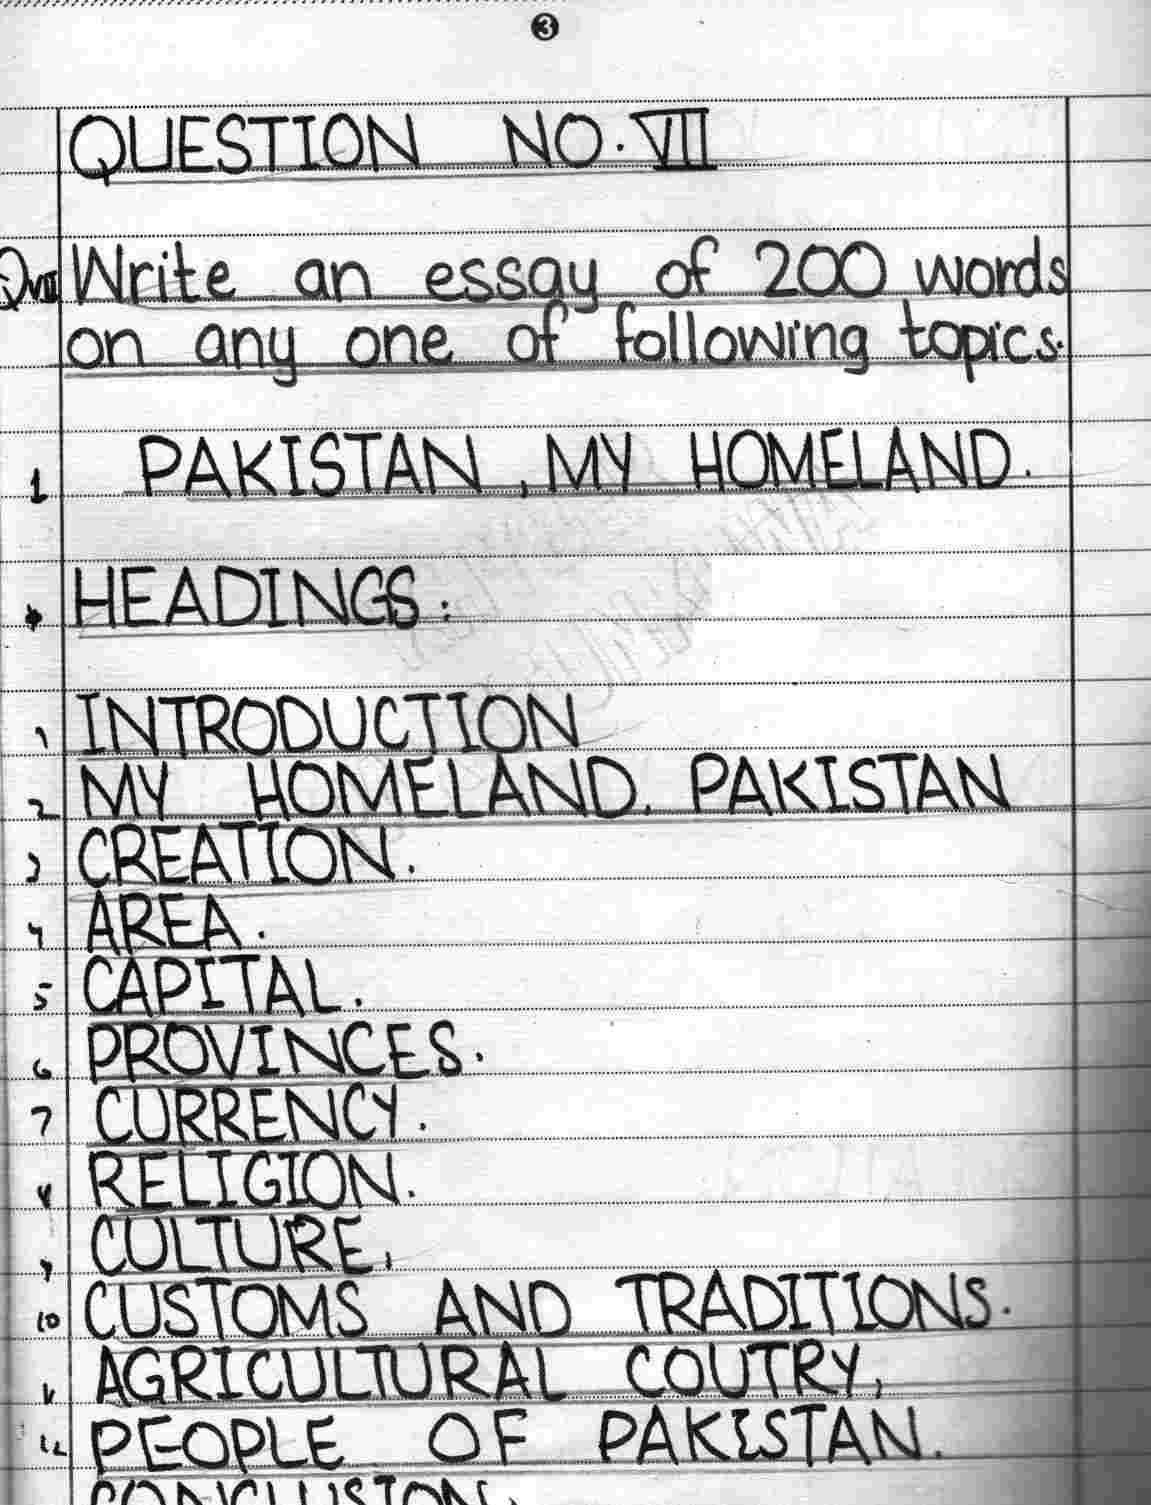 3
QUESTION NO. VII
QVII Write an essay of 200 words
on any one of following topics.
1 PAKISTAN, MY HOMELAND.
HEADINGS:
1 INTRODUCTION
2 MY HOMELAND. PAKISTAN
3 CREATION.
4 AREA.
5 CAPITAL.
6 PROVINCES.
7 CURRENCY.
8 RELIGION.
9 CULTURE.
10 CUSTOMS AND TRADITIONS.
11 AGRICULTURAL COUTRY.
12 PEOPLE OF PAKISTAN.
CONCLUSION.